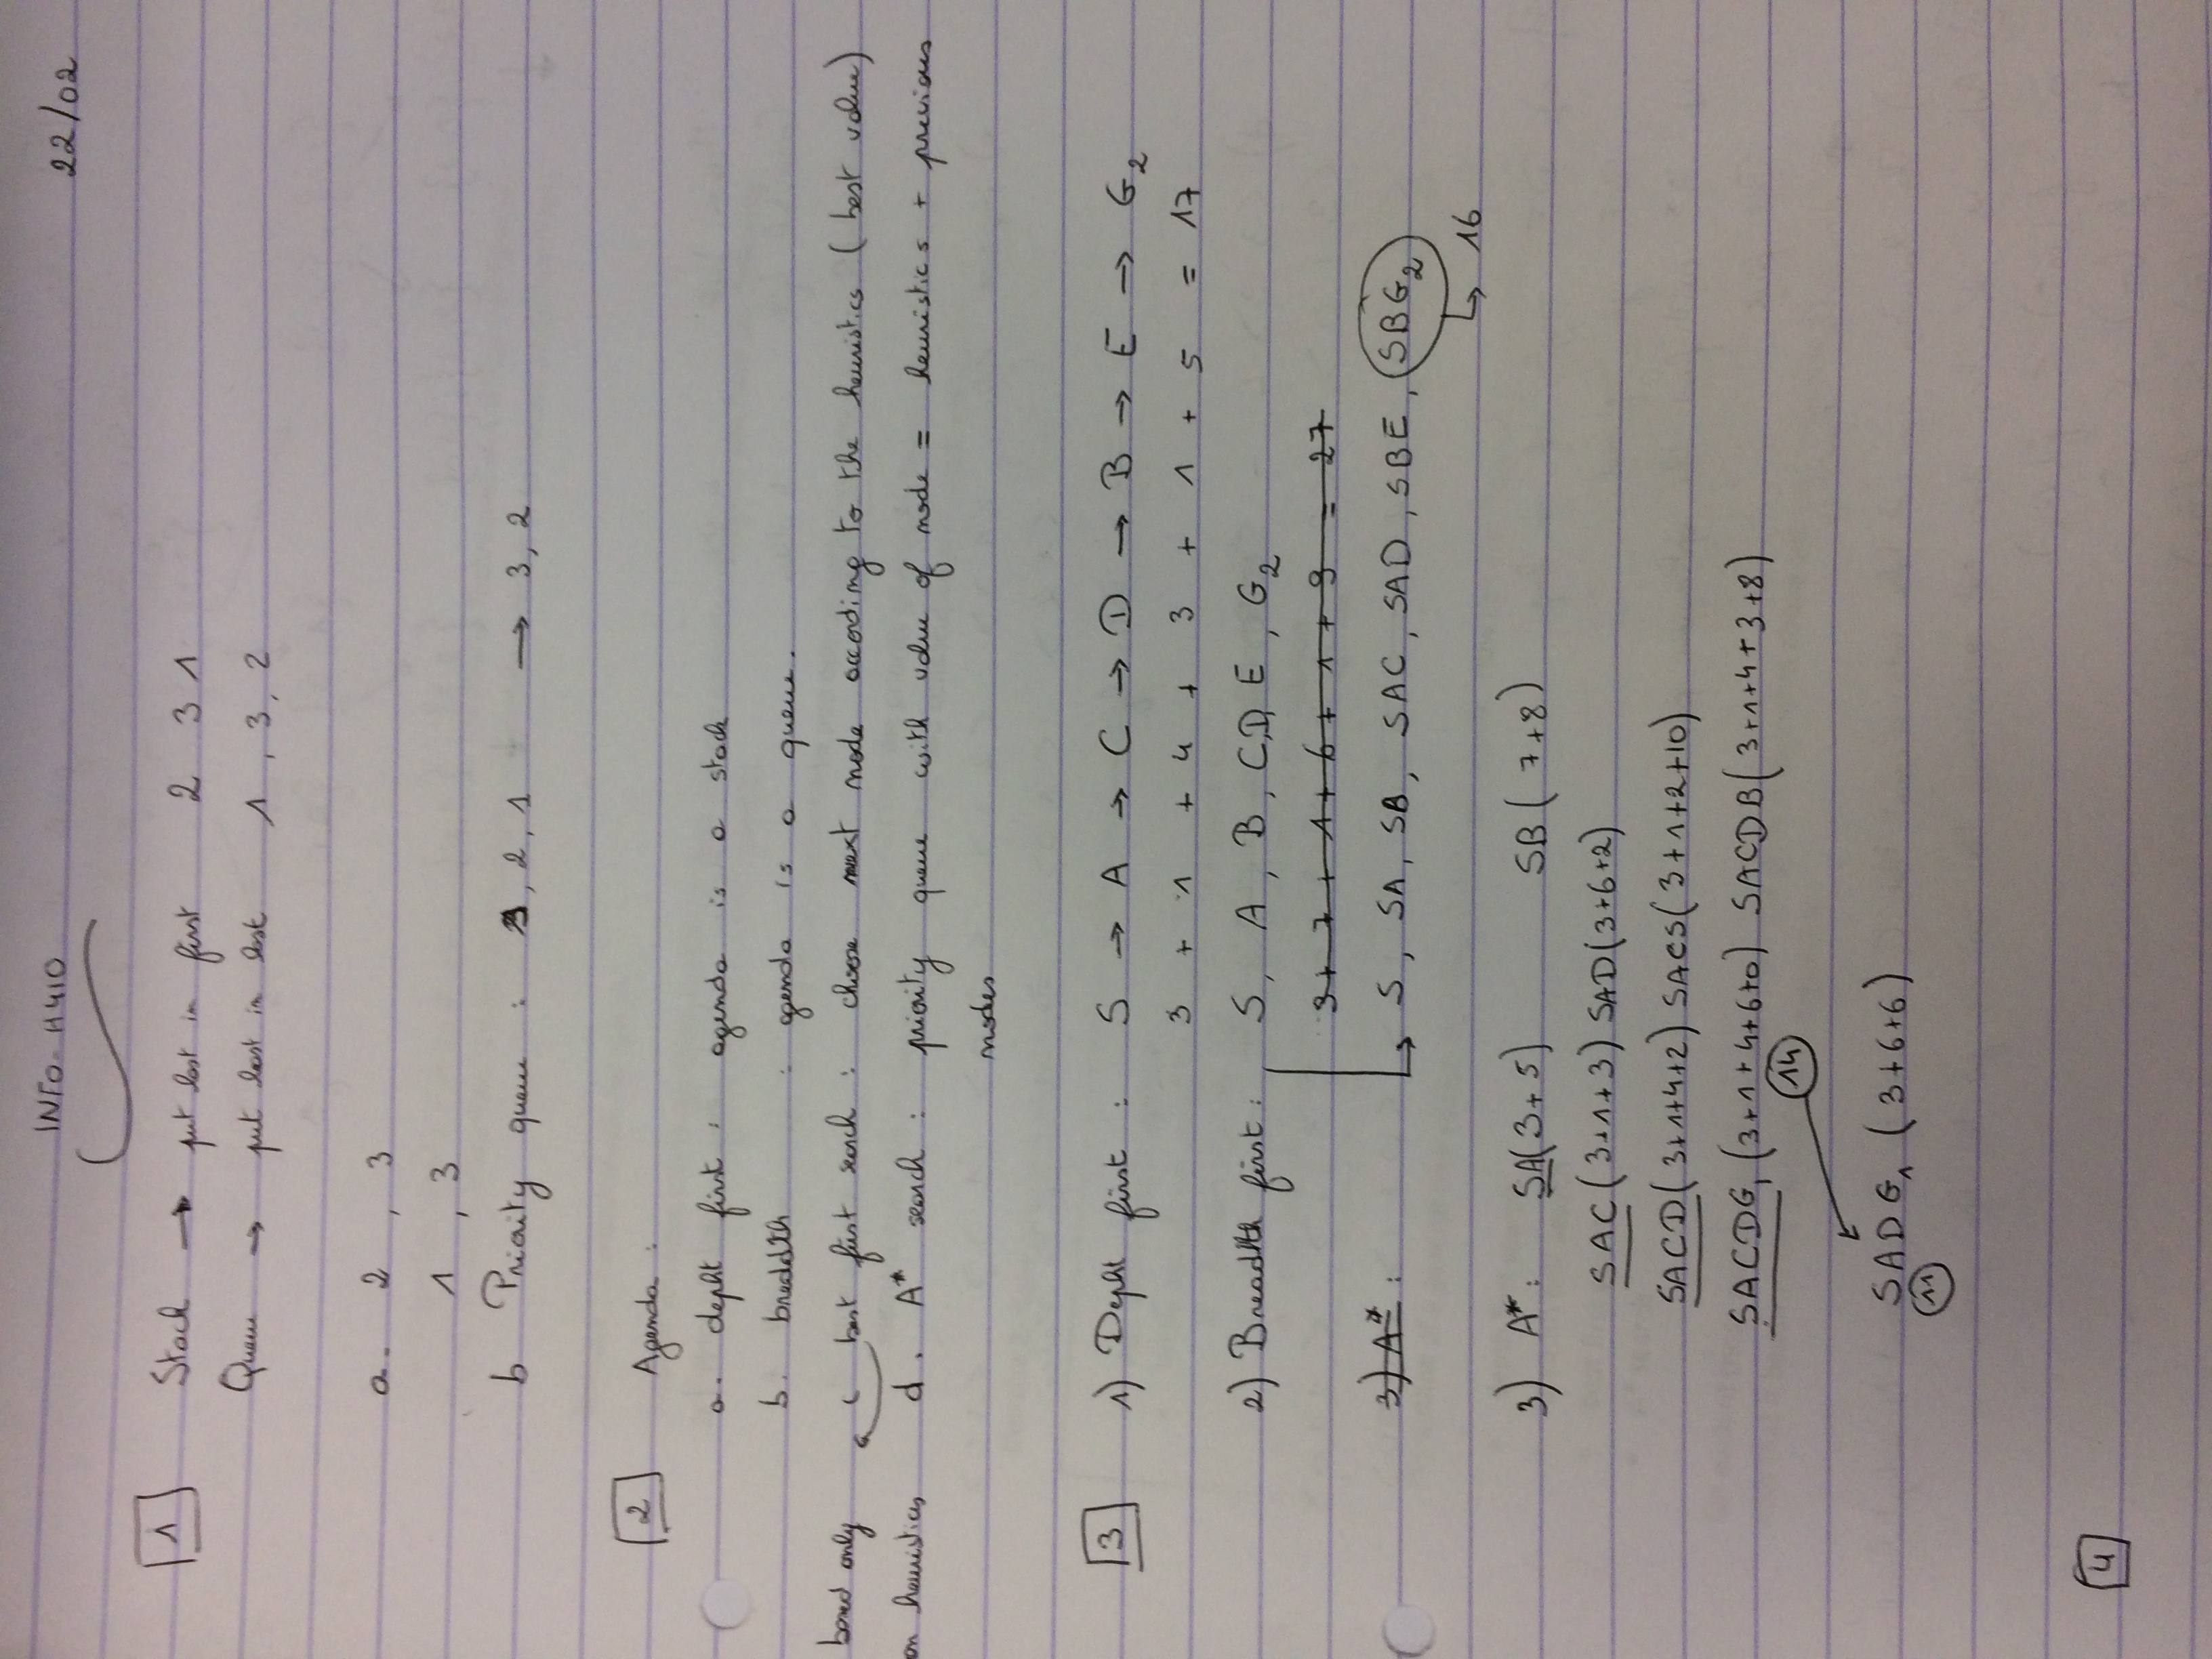 INFO-H410
22/02
1 Stack → put last in first 2 3 1
Queue → put last in last 1, 3, 2
a. 2, 3
1, 3
b Priority queue : 3, 2, 1 → 3, 2
2 Agenda :
a. depht first : agenda is a stack
b. breadth : agenda is a queue.
c best first search : choose next node according to the heuristics (best value)
based only
on heuristics
d. A* search : priority queue with value of node = heuristics + previous
nodes
3 1) Depht first : S → A → C → D → B → E → G2
3 + 1 + 4 + 3 + 1 + 5 = 17
2) Breadth first : S, A, B, C, D, E, G2
3 + 7 + 1 + 6 + 1 + 9 = 27
3) A* : S, SA, SB, SAC, SAD, SBE, SBG2
→ 16
3) A* : SA(3+5) SB(7+8)
SAC(3+1+3) SAD(3+6+2)
SACD(3+1+4+2) SACS(3+1+2+10)
SACDG1(3+1+4+6+0) SACDB(3+1+4+3+8)
14
SADG1 (3+6+6)
11
4